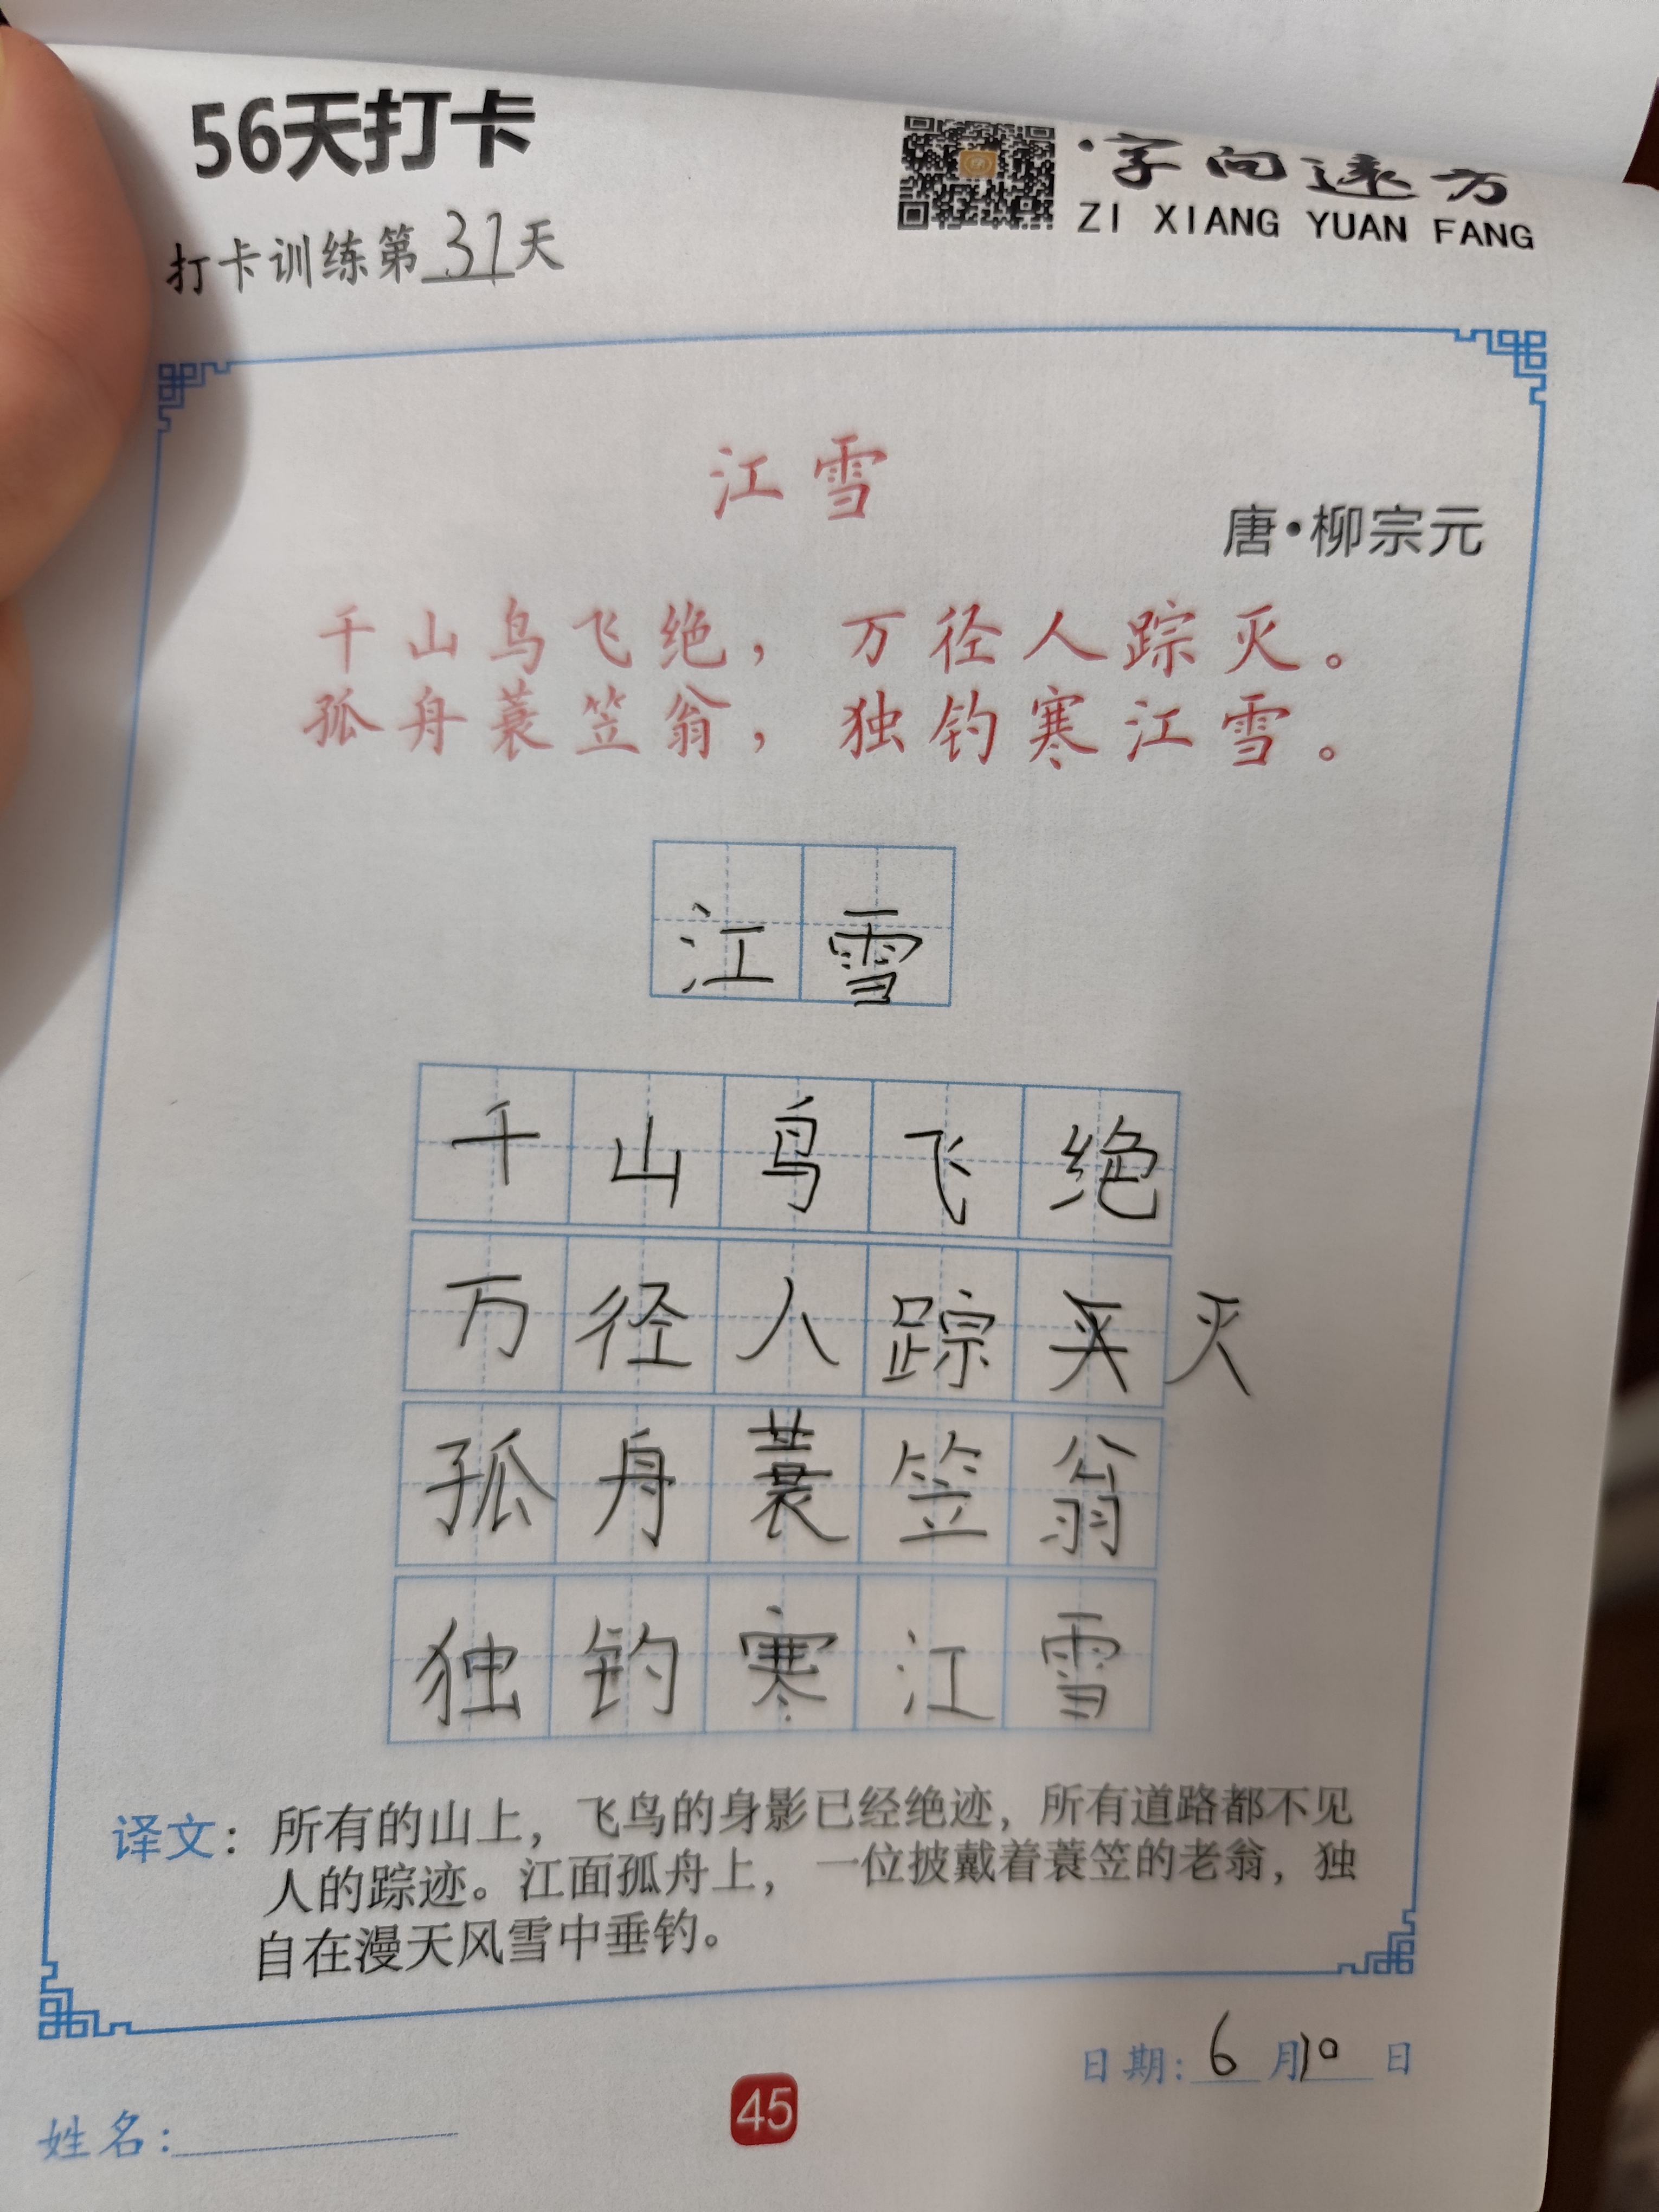 56天打卡
字向远方
ZI XIANG YUAN FANG
打卡训练第37天
江雪
唐·柳宗元
千山鸟飞绝，万径人踪灭。
孤舟蓑笠翁，独钓寒江雪。
江雪
千山鸟飞绝
万径人踪 灭
孤舟蓑笠翁
独钓寒江雪
译文：所有的山上，飞鸟的身影已经绝迹，所有道路都不见
人的踪迹。江面孤舟上，一位披戴着蓑笠的老翁，独
自在漫天风雪中垂钓。
日期：6月10日
45
姓名：